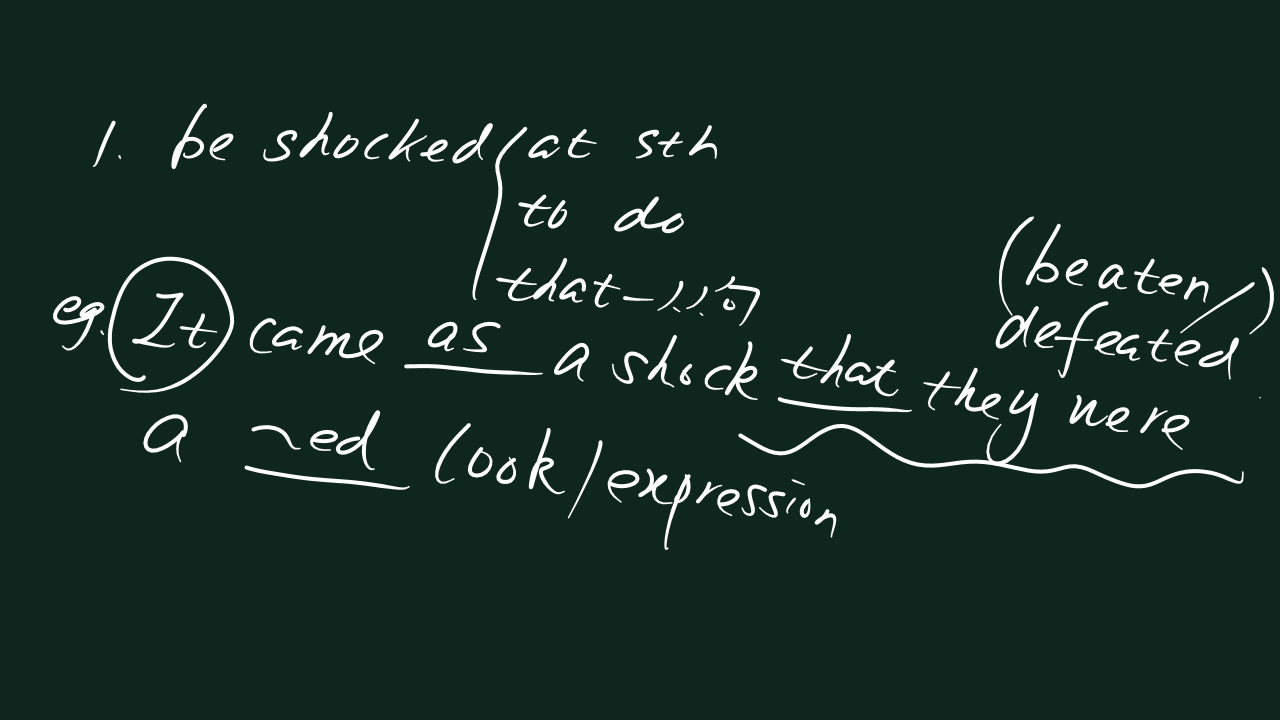 1. be shocked at sth
to do
that-从句
eg. It came as a shock that they were (beaten/
defeated)
a ~ed look/expression